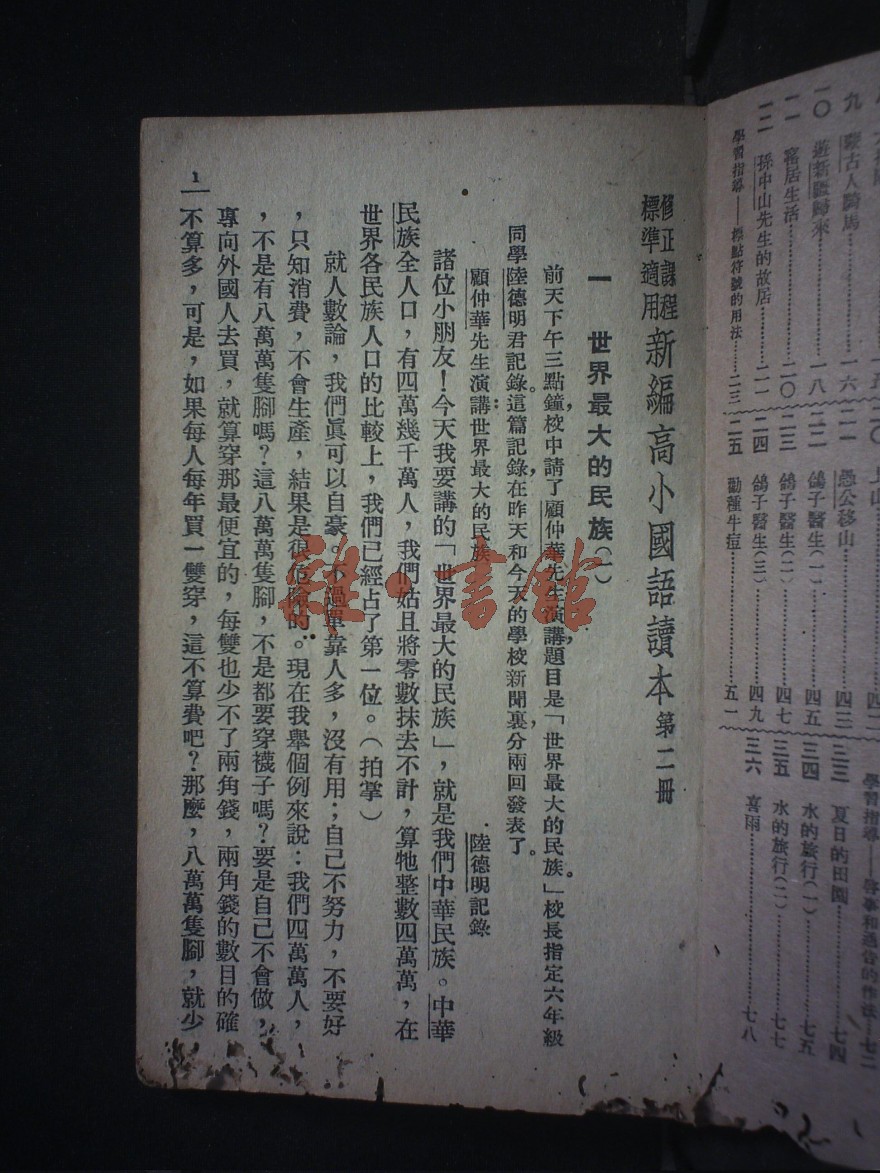 九 蒙古人騎馬……一六
一〇 遊新疆歸來……一八
一一 窰居生活……二〇
一二 孫中山先生的故居……二一
學習指導——標點符號的用法……二三
二〇 上山……四二
二一 愚公移山……四三
二二 鴿子醫生(一)……四五
二三 鴿子醫生(二)……四七
二四 鴿子醫生(三)……四九
二五 勸種牛痘……五一
學習指導——啓事和通告的作法……七二
三三 夏日的田園……七四
三四 水的旅行(一)……七五
三五 水的旅行(二)……七七
三六 喜雨……七八
修正課程標準適用 新編高小國語讀本 第二冊
一 世界最大的民族(一)
前天下午三點鐘,校中請了顧仲華先生演講,題目是「世界最大的民族」。校長指定六年級
同學陸德明君記錄。這篇記錄,在昨天和今天的學校新聞裏,分兩回發表了。
顧仲華先生演講:世界最大的民族 陸德明記錄
諸位小朋友!今天我要講的「世界最大的民族」,就是我們中華民族。中華
民族全人口,有四萬幾千萬人,我們姑且將零數抹去不計,算牠整數四萬萬,在
世界各民族人口的比較上,我們已經占了第一位。(拍掌)
就人數論,我們眞可以自豪。不過單靠人多,沒有用;自己不努力,不要好
,只知消費,不會生產,結果是很危險的。現在我舉個例來說:我們四萬萬人,
,不是有八萬萬隻腳嗎?這八萬萬隻腳,不是都要穿襪子嗎?要是自己不會做,
專向外國人去買,就算穿那最便宜的,每雙也少不了兩角錢,兩角錢的數目的確
不算多,可是,如果每人每年買一雙穿,這不算費吧?那麼,八萬萬隻腳,就少
1
雜·書館